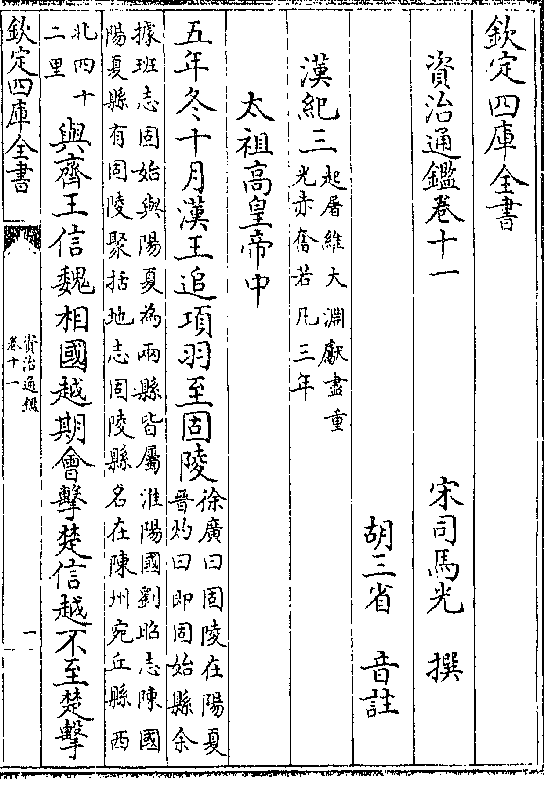 欽定四庫全書
資治通鑑卷十一
宋司馬光 撰
胡三省 音註
漢紀三起屠維大淵獻盡重
光赤奮若凡三年
太祖高皇帝中
五年冬十月漢王追項羽至固陵徐廣曰固陵在陽夏
晉灼曰即固始縣余
據班志固始與陽夏為兩縣皆屬淮陽國劉昭志陳國
陽夏縣有固陵聚括地志固陵縣名在陳州宛丘縣西
北四十
二里與齊王信魏相國越期會擊楚信越不至楚擊
欽定四庫全書
資治通鑑
卷十一
一